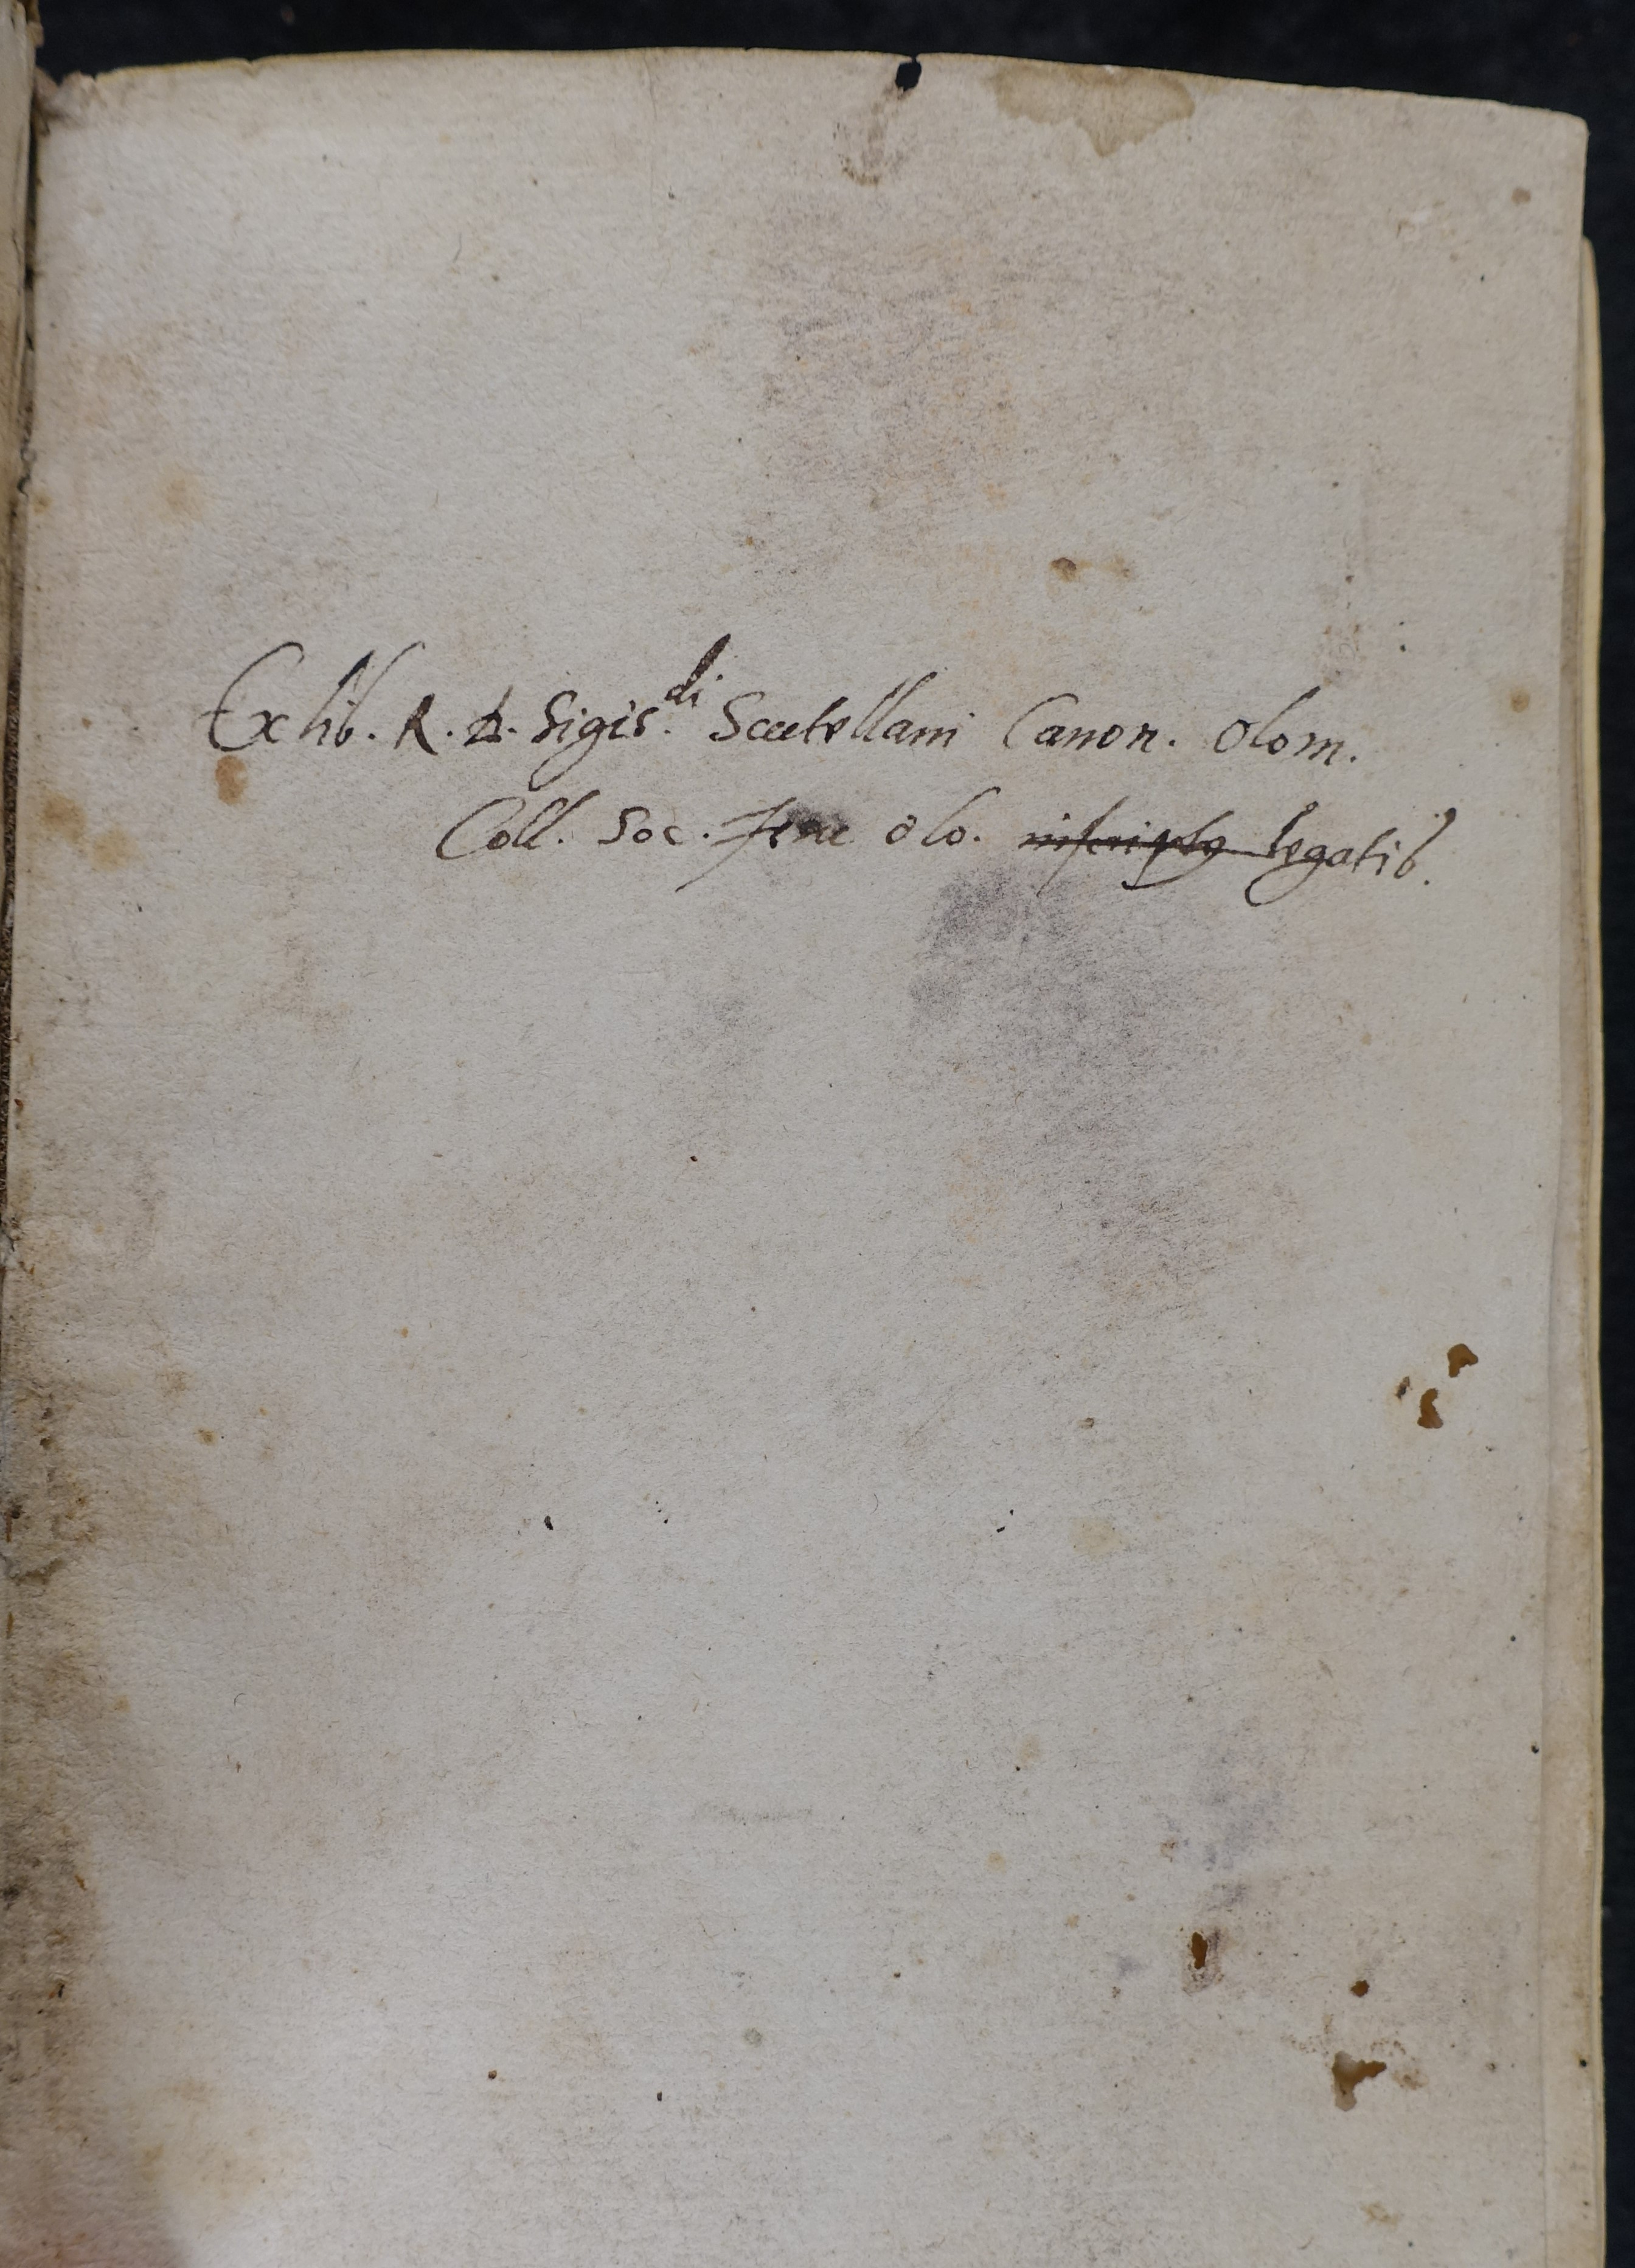 Ex lib. R. D. Sigis.di Scutellani Canon. Olom.
Coll. Soc. Jesu Olo. inscriptg legatis.